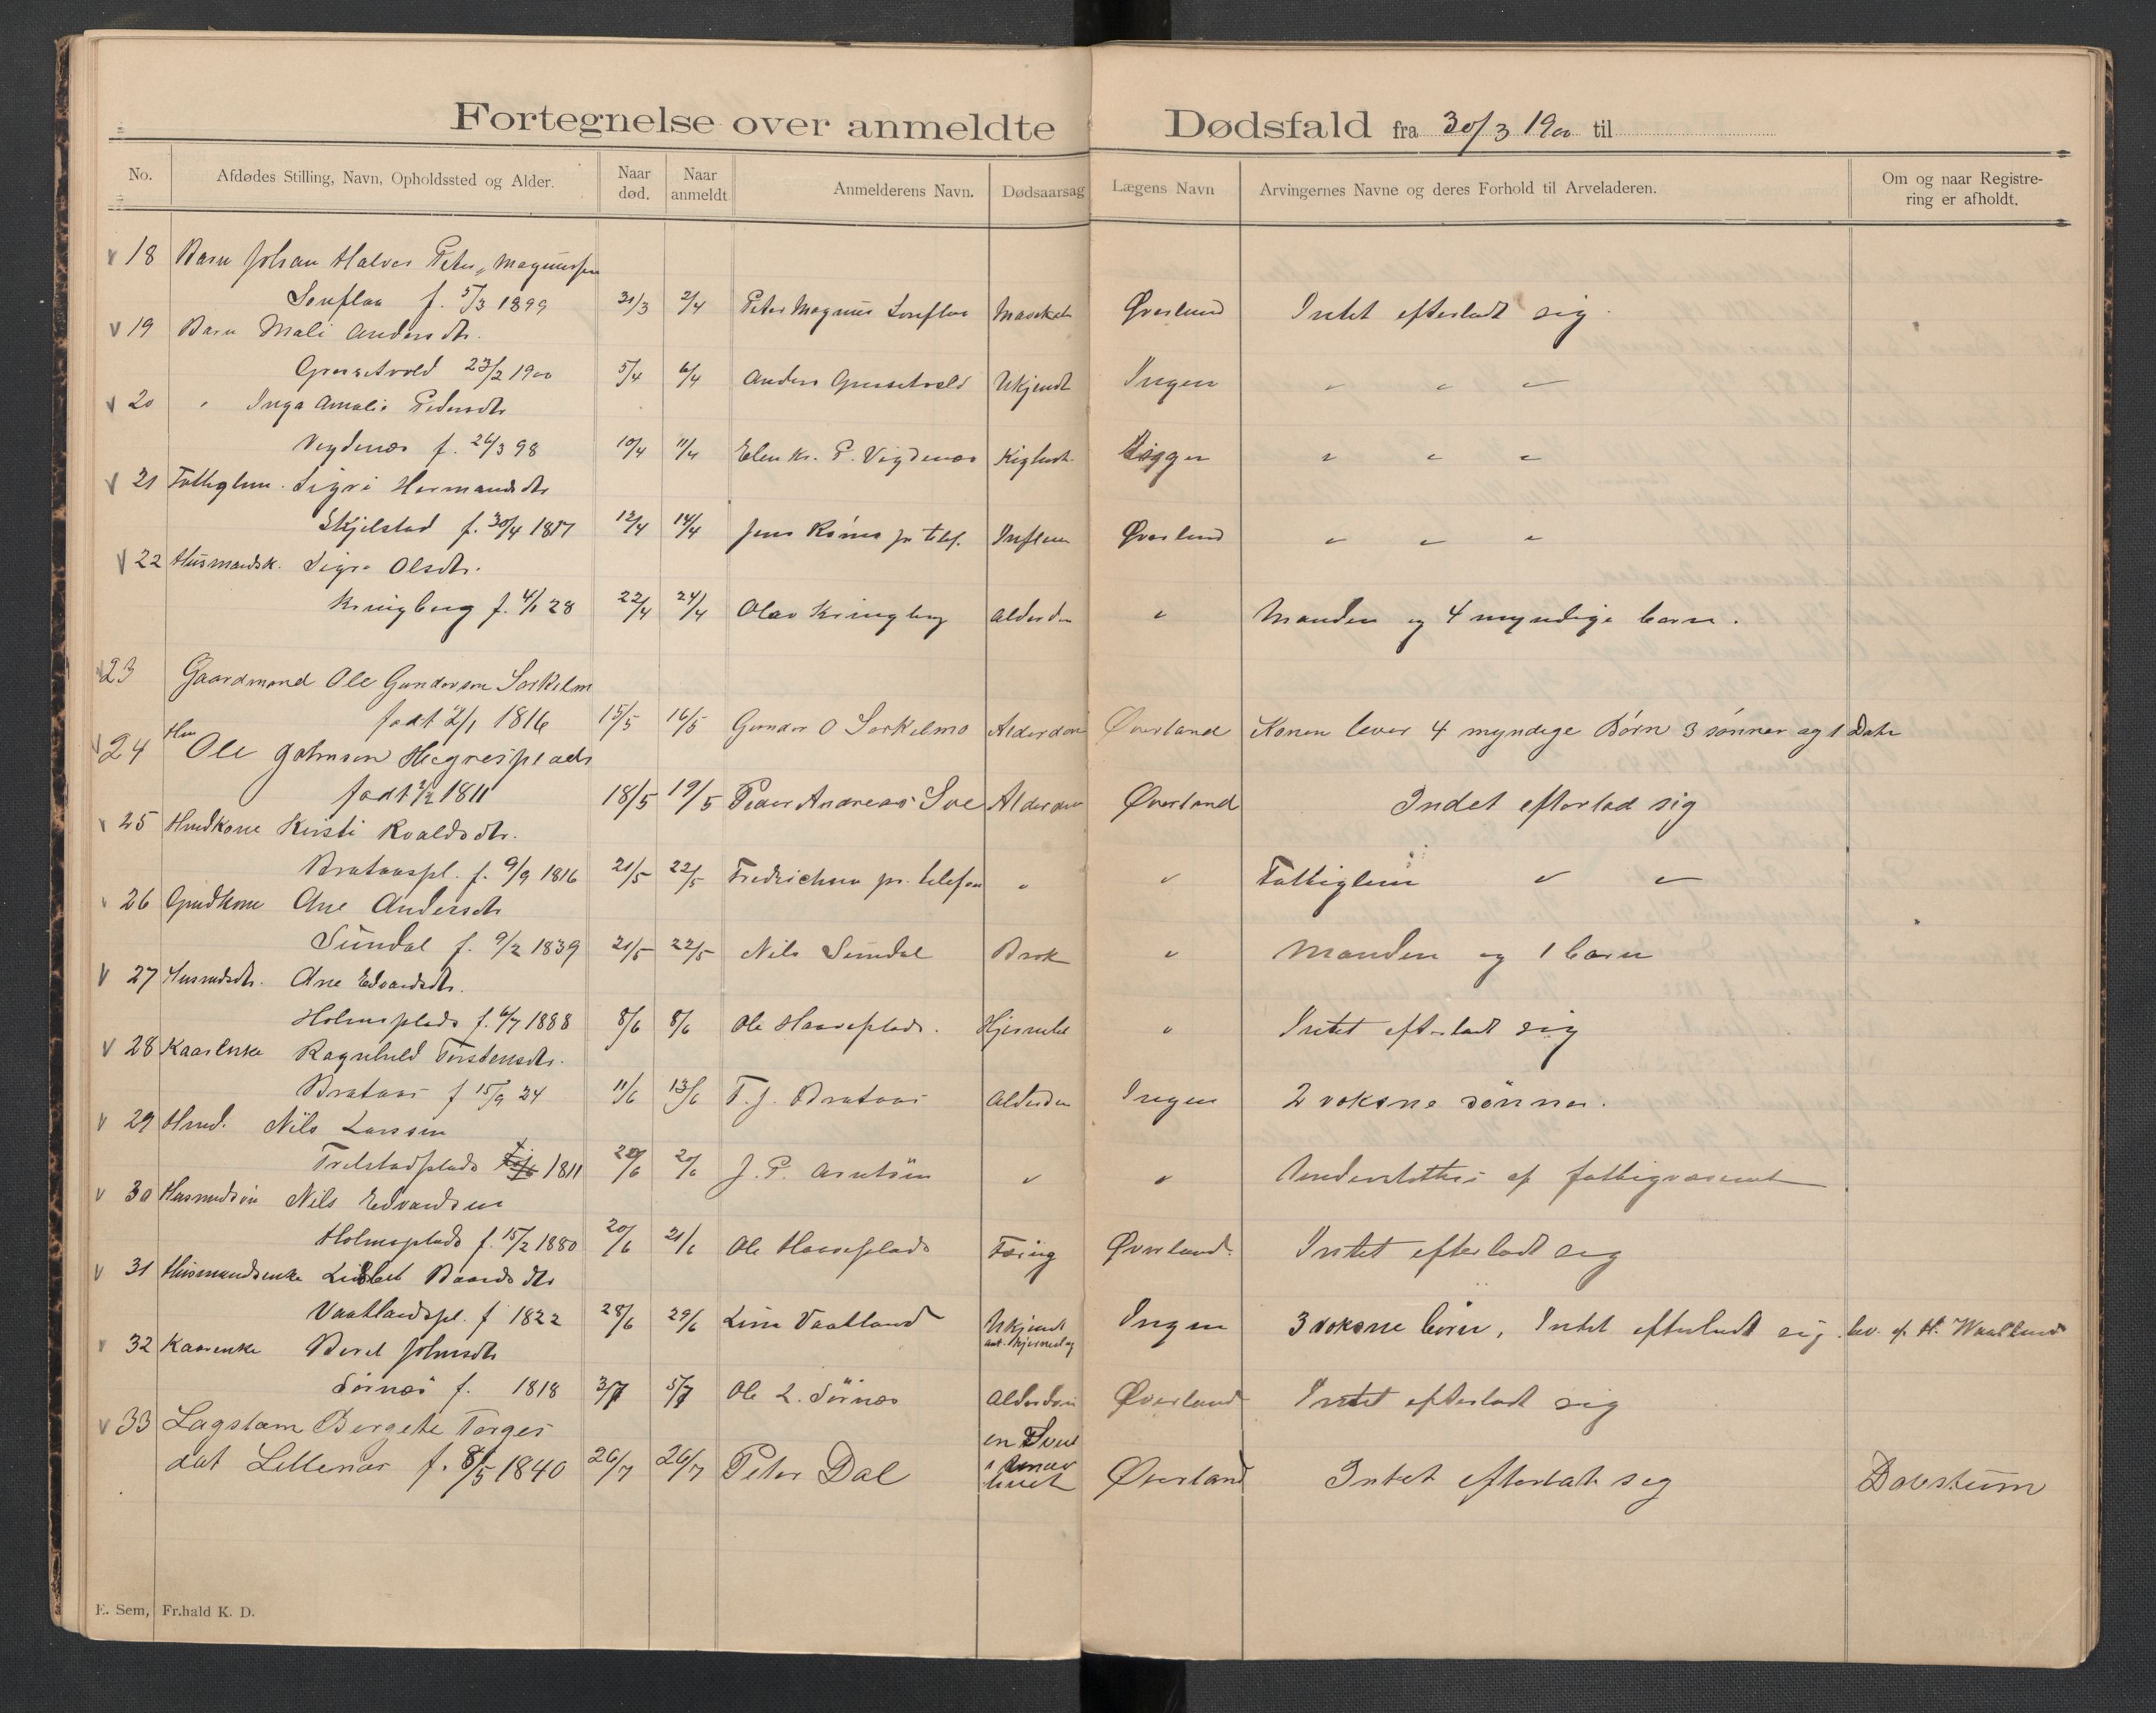 Fortegnelse over anmeldte Dødsfald fra 30/3 1900 til
No. Afdødes Stilling, Navn, Opholdssted og Alder. Naar død. Naar anmeldt Anmelderens Navn. Dødsaarsag Lægens Navn Arvingernes Navne og deres Forhold til Arveladeren. Om og naar Registrering er afholdt.
v 18 Barn Johan Halvor Peter Magnussen
f. 5/3 1899 31/3 2/4 Peter Magnus Øverland Intet efterladt sig
v 19 Barn Mali Andersdtr.
23/2 1900 5/4 6/4 Anders Ukjendt Ingen " " "
v 20 " Inga Amalie Pedersdtr
Vegdenæs f. 26/3 98 10/4 11/4 Elen Kr. P. Vigdenæs " " "
v 21 Fattiglem. Sigri Hermandsdtr
Skjelstad f. 30/4 1817 12/4 14/4 Jens pr telef. Øverland " " "
v 22 Husmandsk. Sigri Olsdtr.
Kringberg f. 4/1 28 22/4 24/4 Olav Kringberg Alderdom " Manden og 4 myndige barn.
v 23 Gaardmand Ole Gundersen
født 2/1 1816 15/5 16/5 Gunder O Alderdom Øverland Konen lever 4 myndige Børn 3 sønner og 1 Datr
v 24 Hm Ole Johnsen Hegresplads
født 2/2 1811 18/5 19/5 Peder Andreas Alderdom Øverland Indet efterlad sig
v 25 Hmdkone Kirsti Roaldsdtr.
Brataaspl. f. 9/9 1816 21/5 22/5 pr. telefon " " Fattiglem " "
26 Gmdkone Ane Andersdtr
Sundal f. 9/2 1839 21/5 22/5 Nils Sundal Brok " Manden og 1 barn
v 27 Husmdsdtr. Ane Edvardsdtr.
Holmsplads f. 6/7 1888 8/6 8/6 Ole " Intet efterladt sig
v 28 Kaarenke Ragnhild Torstensdtr.
Brataas f 15/9 24 11/6 13/6 T. J. Brataas Alderdom Ingen 2 voksne sønner.
v 29 Hmd. Nils Larssen
1811 20/6 20/6 J. P. Arntsen " " Understøttes af fattigvæsenet
v 30 Husmdsøn Nils Edvardsen
Holmsplads f. 15/2 1880 20/6 21/6 Ole Tæring Øverland. Intet efterladt sig
v 31 Husmandsenke Lisbet Baardsdtr
Vaatlandspl. f 1822 28/6 29/6 Line Vaatland Ukjendt Ingen 3 voksne børn, Intet efterladt sig.
v 32 Kaarenke Beret Johnsdtr
Sørnæs f. 1818 3/7 5/7 Ole L. Sørnæs Alderdom Øverland Intet efterladt sig
v 33 Lægslem Bergete Torges
dat Lellenæs f. 8/5 1840 26/7 26/7 Peter Dal Øverland Intet efterlatt sig
E. Sem, Fr.hald K. D.